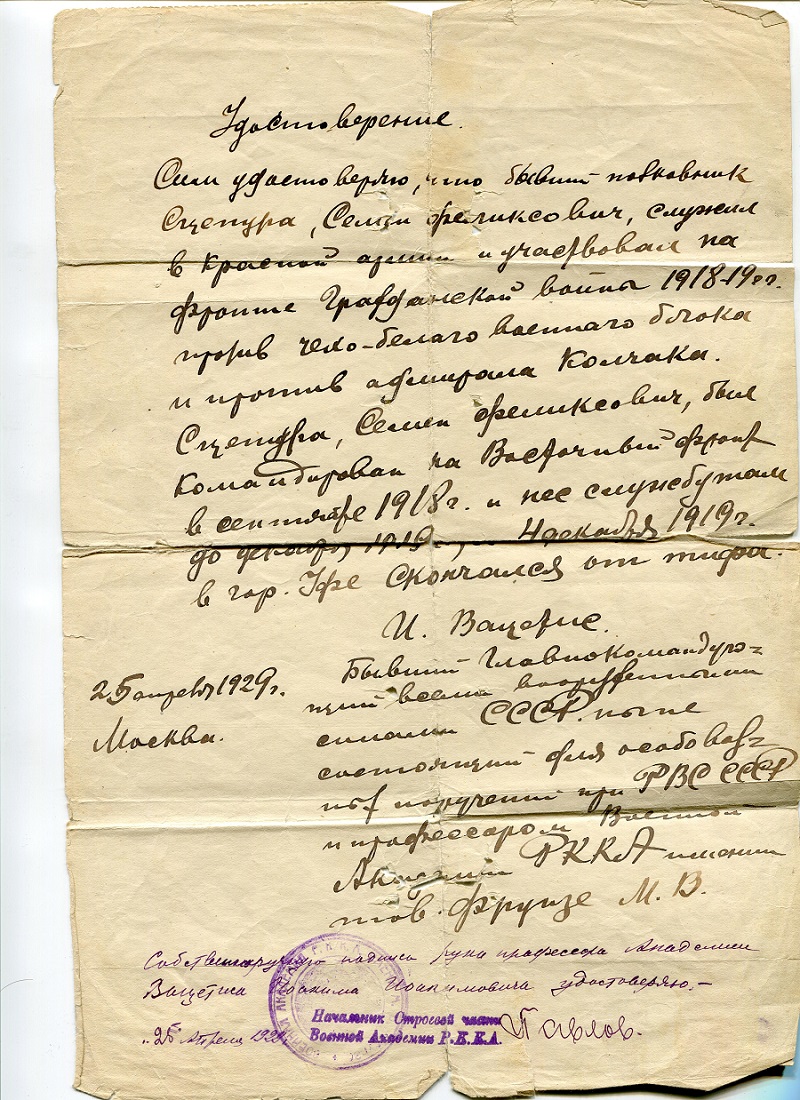 Удостоверение.
Сим удостоверяю, что бывший полковник
Сцепура, Семен Феликсович, служил
в Красной армии и участвовал на
фронте Гражданской войны 1918-19 г.г.
против чехо-белаго военнаго блока
и против адмирала Колчака.
Сцепура, Семен Феликсович, был
командирован на Восточный фронт
в сентябре 1918 г. и нес службу там
до декабря 1919 г., 4 декабря 1919 г.
в гор. Уфе скончался от тифа.
И. Вацетис.
25 апреля 1929 г.
Москва.
Бывший Главнокомандую=
щий всеми вооруженными
силами СССР. ныне
состоящий для особо важ=
ных поручений при РВС СССР
и профессором Военной
Академии РККА имени
тов. Фрунзе М. В.
Собственноручную подпись профессора Академии
Вацетиса Иоакима Иоакимовича удостоверяю.-
"25 Апреля 1929
Начальник Строевой части
Военной Академии Р.К.К.А.
Павлов.